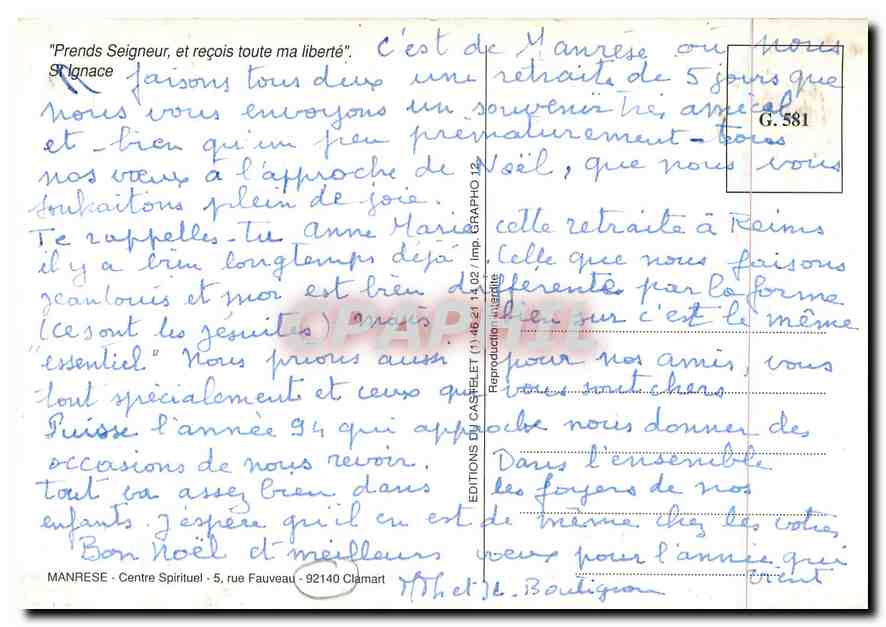 "Prends Seigneur, et reçois toute ma liberté".
St Ignace
C'est de Manrèse où nous
faisons tous deux une retraite de 5 jours que
nous vous envoyons un souvenir très amical
et - bien qu'un peu prématurement - tous
nos vœux à l'approche de Noël, que nous vous
souhaitons plein de joie.
Te rappelles-tu Anne Marie cette retraite à Reims
il y a bien longtemps déjà. Celle que nous faisons
Jean Louis et moi est bien différente par la forme
(ce sont les jésuites) mais bien sur c'est le même
"essentiel" Nous prions aussi pour nos amis, vous
tout spécialement et ceux qui vous sont chers
Puisse l'année 94 qui approche nous donner des
occasions de nous revoir. Dans l'ensemble
tout va assez bien dans les foyers de nos
enfants. J'espère qu'il en est de même chez les votres
Bon Noël et meilleurs vœux pour l'année qui
vient
G. 581
EDITIONS DU CASTELET (1) 46 21 14 02 / Imp. GRAPHO 12
Reproduction interdite
CPAPHIL
MANRESE - Centre Spirituel - 5, rue Fauveau - 92140 Clamart